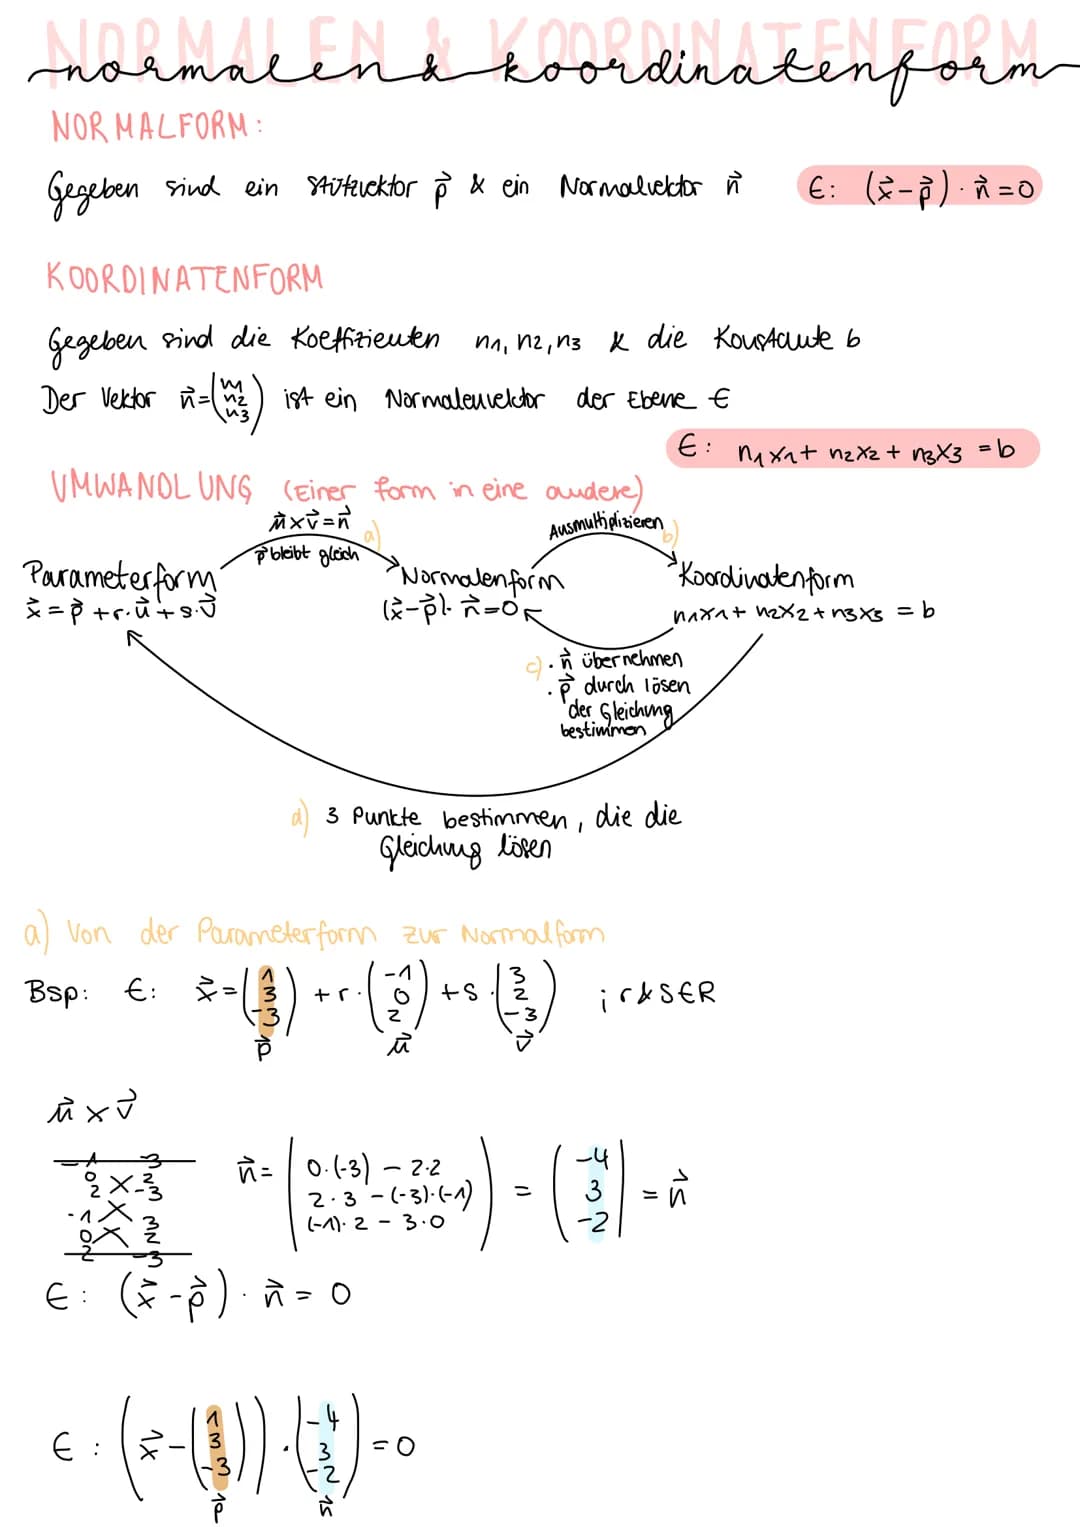 NORMALEN & KOORDINATENFORM
normalen & koordinatenform
NORMALFORM:
Gegeben sind ein Stützvektor p⃗ & ein Normalvektor n⃗
E: (x⃗-p⃗) · n⃗ = 0
KOORDINATENFORM
Gegeben sind die Koeffizienten n1, n2, n3 & die Konstante b
Der Vektor n⃗ = (n1 n2 n3) ist ein Normalenvektor der Ebene E
E: n1x1 + n2x2 + n3x3 = b
UMWANDLUNG (Einer form in eine andere)
u⃗ x v⃗ = n⃗
a)
p⃗ bleibt gleich
Ausmultiplizieren
b)
Parameterform
x⃗ = p⃗ + r·u⃗ + s·v⃗
Normalenform
(x⃗-p⃗)·n⃗=0
Koordinatenform
n1x1 + n2x2 + n3x3 = b
c) · n⃗ übernehmen
· p⃗ durch lösen
der Gleichung
bestimmen
d) 3 Punkte bestimmen, die die
Gleichung lösen
a) Von der Parameterform zur Normalform
Bsp: E: x⃗ = (1 3 -3) + r · (-1 0 2) + s · (3 2 -3) ; r & s ∈ R
p⃗ u⃗ v⃗
u⃗ x v⃗
-1 3
0 2
2 -3
-1 3
0 2
2 -3
n⃗ = (0·(-3) - 2·2
2·3 - (-3)·(-1)
(-1)·2 - 3·0) = (-4 3 -2) = n⃗
E: (x⃗ - p⃗) · n⃗ = 0
E: (x⃗ - (1 3 -3)) · (-4 3 -2) = 0
p⃗ n⃗